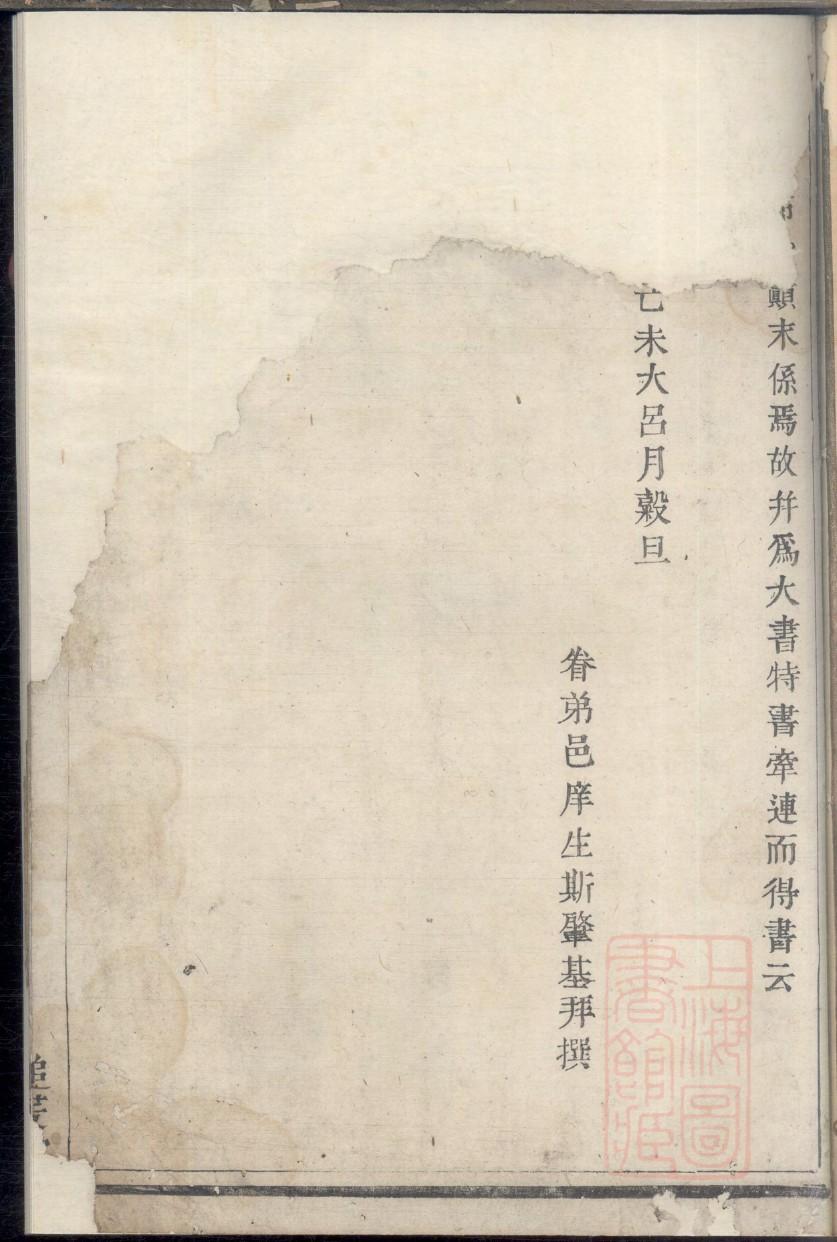 顛末係焉故幷爲大書特書牽連而得書云
未大呂月穀旦
眷弟邑庠生斯肇基拜撰
上海圖書館藏